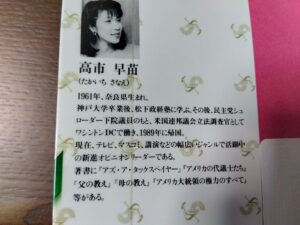 高市 早苗
(たかいち さなえ)
1961年、奈良県生まれ。
神戸大学卒業後、松下政経塾に学ぶ。その後、民主党シュ
ローダー下院議員のもと、米国連邦議会立法調査官として
ワシントンDCで働き、1989年に帰国。
現在、テレビ、マスコミ、講演などの幅広いジャンルで活躍中
の新進オピニオンリーダーである。
著書に「アズ・ア・タックスペイヤー」「アメリカの代議士たち」
「父の教え」「母の教え」「アメリカ大統領の権力のすべて」
等がある。